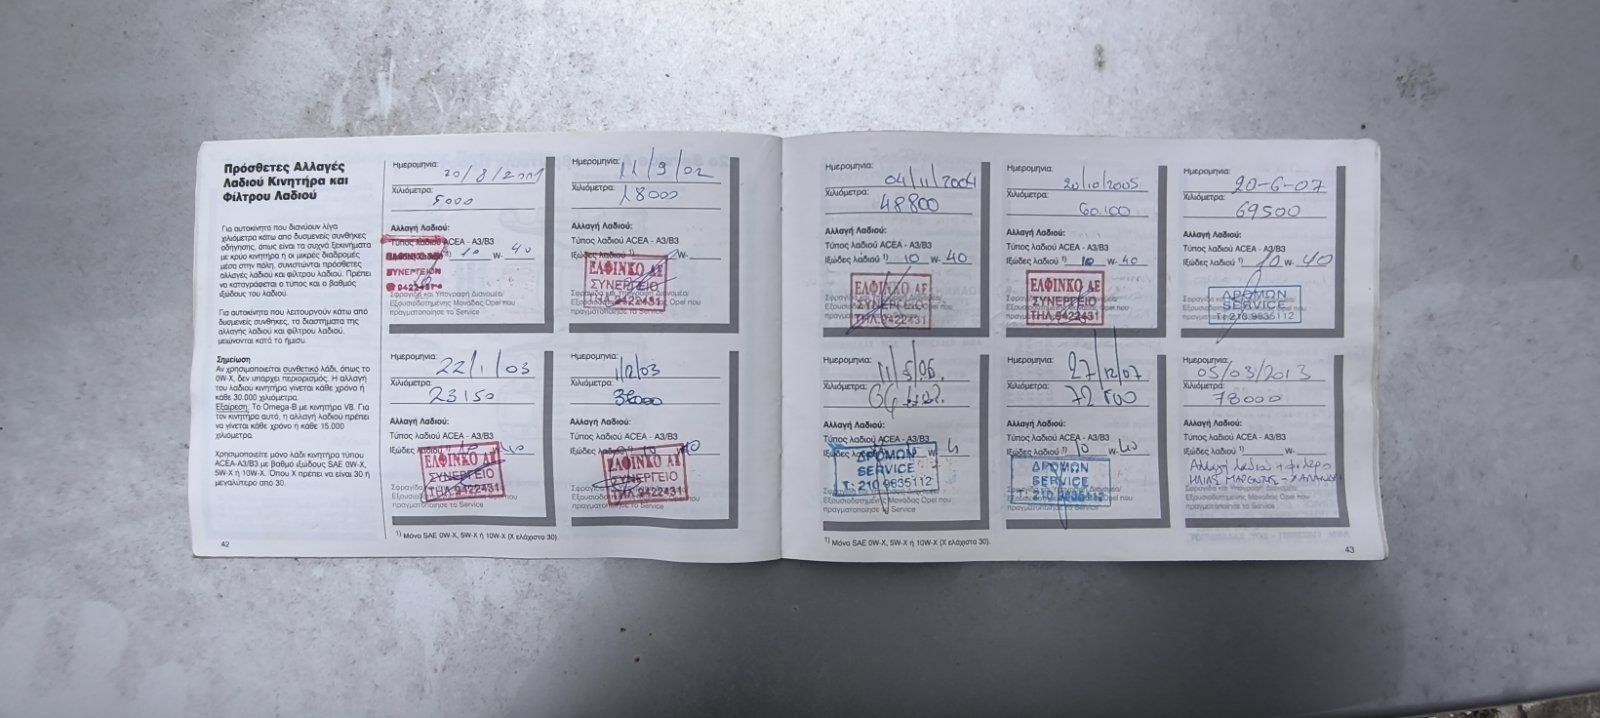 Πρόσθετες Αλλαγές
Λαδιού Κινητήρα και
Φίλτρου Λαδιού
Για αυτοκίνητα που διανύουν λίγα
χιλιόμετρα κάτω από δυσμενείς συνθήκες
οδήγησης, όπως είναι τα συχνά ξεκινήματα
με κρύο κινητήρα ή οι μικρές διαδρομές
μέσα στην πόλη, συνιστώνται πρόσθετες
αλλαγές λαδιού και φίλτρου λαδιού. Πρέπει
να καταγράφεται ο τύπος και ο βαθμός
ιξώδους του λαδιού.
Για αυτοκίνητα που λειτουργούν κάτω από
δυσμενείς συνθήκες, τα διαστήματα της
αλλαγής λαδιού και φίλτρου λαδιού,
μειώνονται κατά το ήμισυ.
Σημείωση
Αν χρησιμοποιείται συνθετικό λάδι, όπως το
0W-X, δεν υπάρχει περιορισμός. Η αλλαγή
του λαδιού κινητήρα γίνεται κάθε χρόνο ή
κάθε 30.000 χιλιόμετρα.
Εξαίρεση: Το Omega-B με κινητήρα V8. Για
τον κινητήρα αυτό, η αλλαγή λαδιού πρέπει
να γίνεται κάθε χρόνο ή κάθε 15.000
χιλιόμετρα.
Χρησιμοποιείτε μόνο λάδι κινητήρα τύπου
ACEA-A3/B3 με βαθμό ιξώδους SAE 0W-X,
5W-X ή 10W-X. Όπου X πρέπει να είναι 30 ή
μεγαλύτερο από 30.
42
Ημερομηνία: 20/8/2001
Χιλιόμετρα:
5000
Αλλαγή Λαδιού:
Τύπος λαδιού ACEA - A3/B3
10 W- 40
ΣΥΝΕΡΓΕΙΟΝ
Σφραγίδα και Υπογραφή Διανομέα/
Εξουσιοδοτημένης Μονάδας Opel που
πραγματοποίησε το Service
Ημερομηνία: 11/9/02
Χιλιόμετρα: 18000
Αλλαγή Λαδιού:
Τύπος λαδιού ACEA - A3/B3
Ιξώδες λαδιού 1) W-
ΕΛΦΙΝΚΟ ΑΕ
ΣΥΝΕΡΓΕΙΟ
ΤΗΛ. 9422431
Εξουσιοδοτημένης Μονάδας Opel που
πραγματοποίησε το Service
Ημερομηνία: 22/1/03
Χιλιόμετρα:
23150
Αλλαγή Λαδιού:
Τύπος λαδιού ACEA - A3/B3
Ιξώδες λαδιού 1) 10 40
ΕΛΦΙΝΚΟ ΑΕ
ΣΥΝΕΡΓΕΙΟ
ΤΗΛ. 9422431
πραγματοποίησε το Service
1) Μόνο SAE 0W-X, 5W-X ή 10W-X (X ελάχιστο 30).
Ημερομηνία: 1/12/03
Χιλιόμετρα:
Αλλαγή Λαδιού:
Τύπος λαδιού ACEA - A3/B3
Ιξώδες λαδιού 1) 10
ΕΛΦΙΝΚΟ ΑΕ
ΣΥΝΕΡΓΕΙΟ
ΤΗΛ. 9422431
πραγματοποίησε το Service
Ημερομηνία:
04/11/2004
Χιλιόμετρα:
48800
Αλλαγή Λαδιού:
Τύπος λαδιού ACEA - A3/B3
Ιξώδες λαδιού 1) 10 W- 40
ΕΛΦΙΝΚΟ ΑΕ
ΣΥΝΕΡΓΕΙΟ
ΤΗΛ. 9422431
Ημερομηνία:
20/10/2005
Χιλιόμετρα:
60.100
Αλλαγή Λαδιού:
Τύπος λαδιού ACEA - A3/B3
Ιξώδες λαδιού 1) 10 W- 40
ΕΛΦΙΝΚΟ ΑΕ
ΣΥΝΕΡΓΕΙΟ
ΤΗΛ. 9422431
Ημερομηνία:
20-6-07
Χιλιόμετρα:
69500
Αλλαγή Λαδιού:
Τύπος λαδιού ACEA - A3/B3
Ιξώδες λαδιού 1) 10 W- 40
ΔΡΟΜΩΝ
SERVICE
Τ: 210 9635112
πραγματοποίησε το Service
Ημερομηνία:
Χιλιόμετρα:
Αλλαγή Λαδιού:
Τύπος λαδιού ACEA - A3/B3
ΔΡΟΜΩΝ
SERVICE
Τ: 210 9635112
Εξουσιοδοτημένης Μονάδας Opel που
πραγματοποίησε το Service
1) Μόνο SAE 0W-X, 5W-X ή 10W-X (X ελάχιστο 30).
Ημερομηνία: 27/12/07
Χιλιόμετρα:
Αλλαγή Λαδιού:
Τύπος λαδιού ACEA - A3/B3
Ιξώδες λαδιού 1) 10 W- 40
ΔΡΟΜΩΝ
SERVICE
Τ: 210 9635112
πραγματοποίησε το Service
Ημερομηνία:
05/03/2013
Χιλιόμετρα:
78000
Αλλαγή Λαδιού:
Τύπος λαδιού ACEA - A3/B3
Ιξώδες λαδιού 1) W-
Αλλαγή λαδιού + φίλτρο
Σφραγίδα και Υπογραφή Διανομέα/
Εξουσιοδοτημένης Μονάδας Opel που
πραγματοποίησε το Service
43